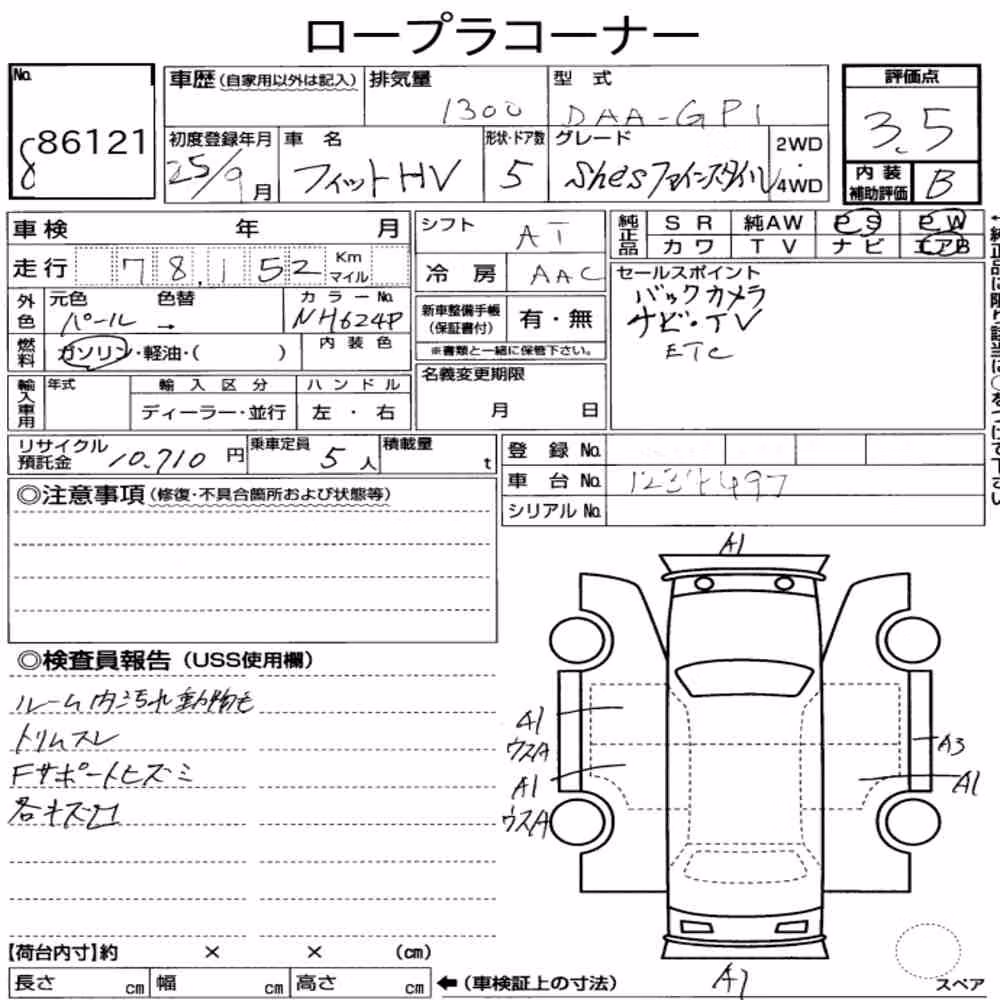 ロープラコーナー
No. 86121
車歴(自家用以外は記入) 排気量 1300 型式 DAA-GP1
評価点 3.5
初度登録年月 25/9月 車名 フィットHV 形状・ドア数 5 グレード She's ファインスタイル 2WD・4WD
内装補助評価 B
車検 年 月
シフト AT
純正品 SR 純AW PS PW
カワ TV ナビ エアB
走行 78,152 Km マイル
冷房 AAC
セールスポイント
バックカメラ
ナビ・TV
ETC
外色 元色 パール 色替 → カラーNo. NH624P
新車整備手帳(保証書付) 有・無
※書類と一緒に保管下さい。
燃料 ガソリン・軽油・( ) 内装色
名義変更期限 月 日
輸入車用 年式 輸入区分 ハンドル
ディーラー・並行 左・右
リサイクル預託金 10.710円 乗車定員 5人 積載量 t
登録No.
車台No.
シリアルNo.
◎注意事項(修復・不具合箇所および状態等)
◎検査員報告(USS使用欄)
ルーム内汚れ動物毛
トリムスレ
Fサポートヒズミ
各キズ凹
A1
A1
ウスA
A1
ウスA
A3
A1
A1
【荷台内寸】約 × × (cm)
長さ cm 幅 cm 高さ cm ←(車検証上の寸法)
スペア